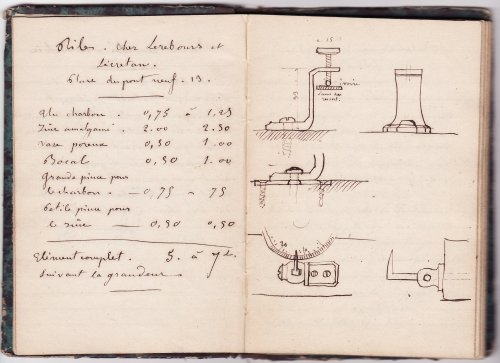 Piles. chez Lerebours et
Secretan.
Place du pont neuf. 13.
charbon. 0,75 à 1,25
Zinc amalgamé. 2.00 2.50
vase poreux 0,50 1.00
Bocal 0,50 1.00
Grande pince pour
le charbon. — 0,75 » 75
Petite pince pour
le zinc — 0,50 0,50
Elément complet. 5. à 7
suivant la grandeur
15
ivoire